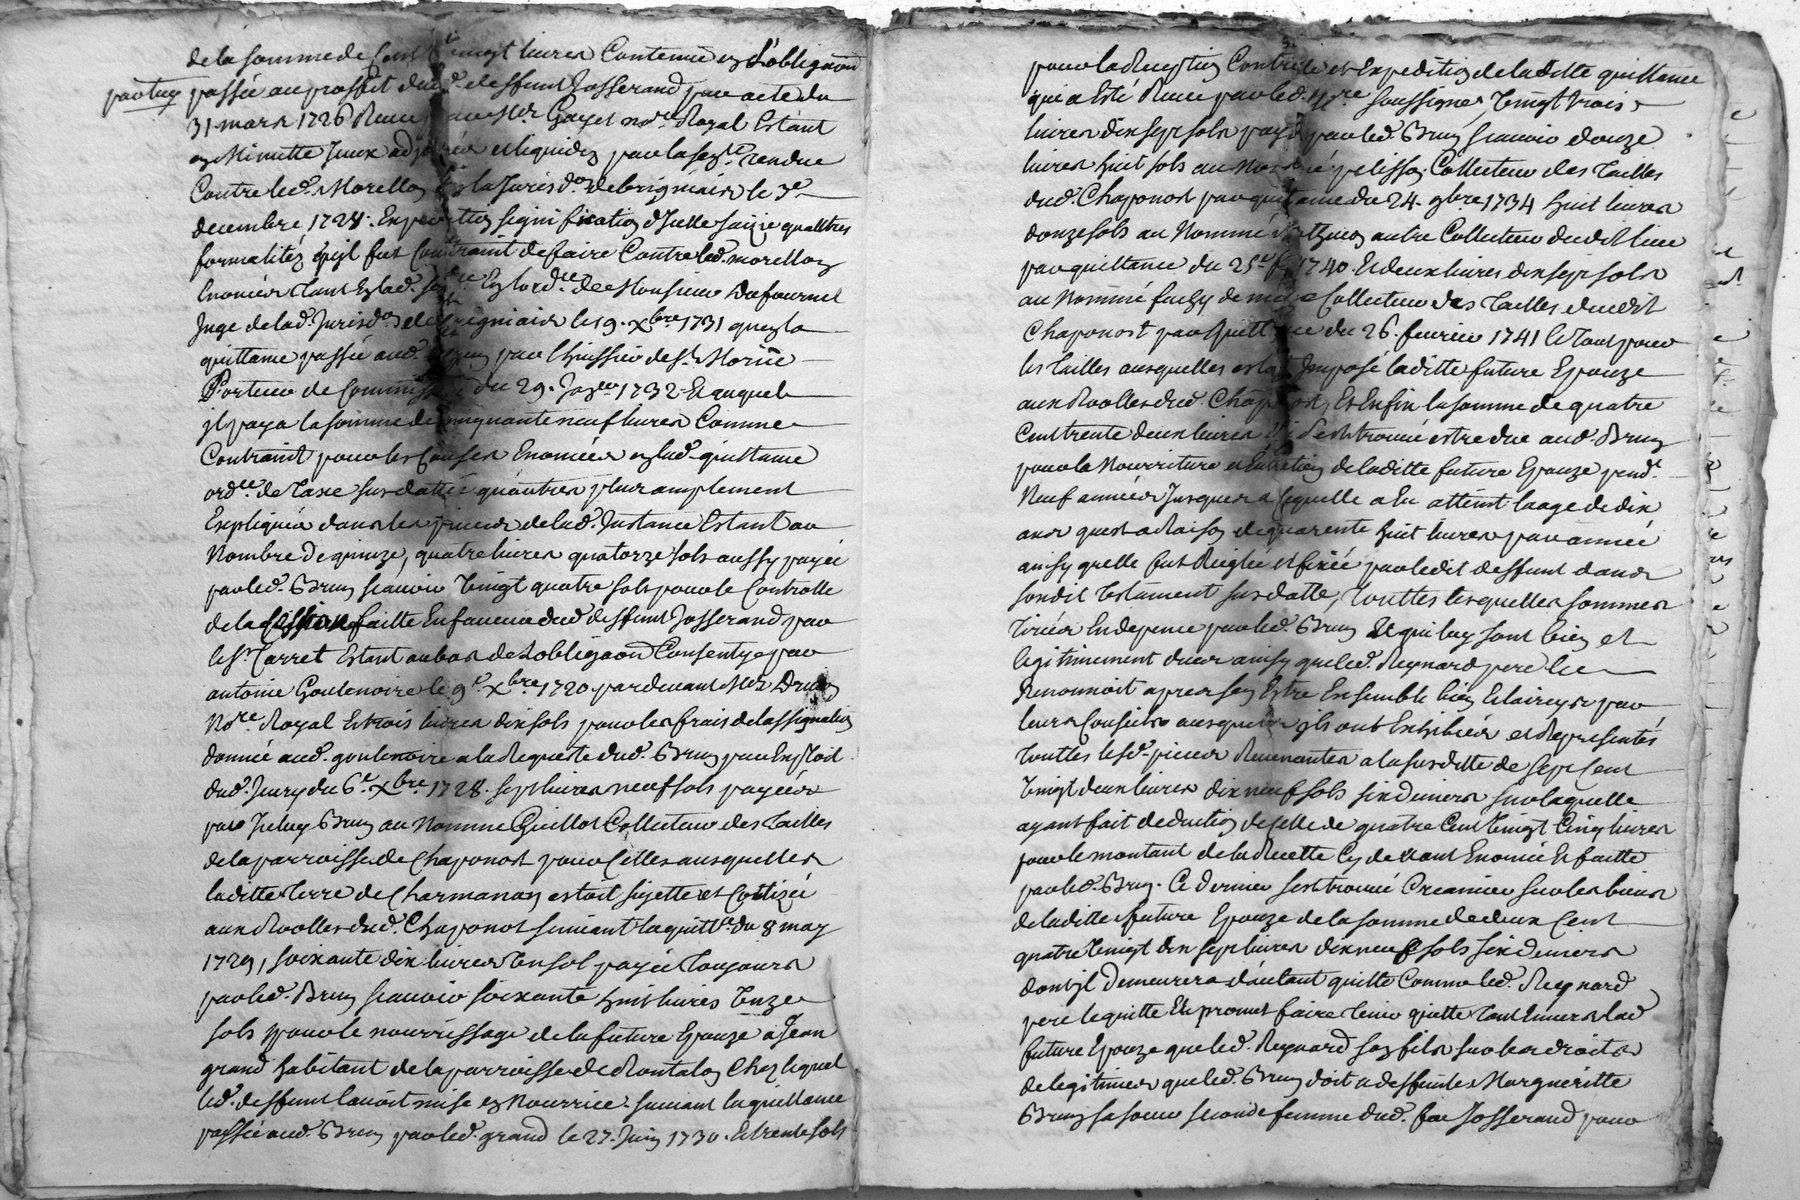 de la somme de cent vingt livres Contenue en L'obliga͠on
par luy passée au proffit dud. deffunt Josserand par acte du
31 mars 1726 Receu par Mer Gayet nore Royal Estant
en Minutte Jceux adjugés et liquidez par la senle rendue
Contre led. Morellon en la Jurisdon de brignais le 3e
decembre 1728. Expedition signiffication d'Jcelle saizie quallttres
formalitéz qu'jl fut Contraint de faire Contre led. morellon
Enoncées tant En lad. senle En lordce de Monsieur Dufournel
Juge de lad. Jurisdon de brignais le 19. xbre 1731 qu'en la
quittance passée aud. Brun par l'huissier de St Morice
Porteur de Commission du 29. Janer 1732. Et auquel
jl paya la somme de cinquante neuf livres Comme
Contraint pour les Causes Enoncées en lad. quittance
ordce de Taxe sus dattée qu'autres plus amplement
Expliquées dans les pieces de lad. Jnstance Estant au
Nombre de quinze, quatre livres quatorze sols aussy payée
par led. Brun scavoir vingt quatre sols pour le Controlle
de la Cession faitte En faveur dud. deffunt Josserand par
le Sr Tarret Estant au bas de Lobliga͠on Consentye par
antoine Goutenoire le 9e xbre 1720 pardevant Mer
Nore Royal Et trois livres dix sols pour les frais de lassignation
donnée aud. goutenoire a la Requeste dud. Brun par Exploit
dud. Jeury du 6e xbre 1728. sept livres neuf sols payées
par Jceluy Brun au Nommé Guillot Collecteur des Tailles
de la parroisse de Chaponost pour Celles ausquelles
laditte Terre de Charmanon estoit sujette et Cottizée
aux Roolles dud. Chaponost suivant la quittce du 8 may
1729, soixante dix livres un sol payée Toujours
par led. Brun scavoir soixante huit livres onze
sols pour le nourrissage de la future Epouze a Jean
grand habitant de la parroisse de Rontalon Chez lequel
led. deffunt l'avoit mise en Nourrice suivant la quittance
passée aud. Brun par led. grand le 27. Juin 1730. Et trente sols
pour la Reception Controlle et Expedition de laditte quittance
qui a Esté Receu par led. nore soussigné, Vingt trois
livres dix sept sols payés par led. Brun scavoir douze
livres huit sols au Nommé pelisson Collecteur des Tailles
dud. Chaponost par quittance du 24. 9bre 1734 huit livres
douze sols au Nommé autre Collecteur dudit lieu
par quittance du 25e 1740. Et deux livres dix sept sols
au Nommé Collecteur des Tailles dudit
Chaponost par Quittance du 26. fevrier 1741 le Tout pour
les Tailles ausquelles estoit Jmposé laditte future Epouze
aux Roolles dud. Chaponost, Et Enfin la somme de quatre
Cent trente deux livres qui s'est trouvé estre due aud. Brun
pour la Nourriture et Entretien de laditte future Epouze pendt
Neuf années Jusques a Ce quelle a Eu atteint laage de dix
ans quest a Raison de quarente huit livres par année
ainsy quelle fut Reiglée et fixée par ledit deffunt dans
sondit Testament sus datté, Touttes lesquelles sommes
Tirées En depence par led. Brun Et qui luy sont bien et
legitimement dues ainsy que led. Reynard pere le
Reconnoit apres sen Estre Ensemble bien Eclaircys par
leurs Conseils ausquels jls ont Exhibées et Representés
touttes lesd. pieces Revenantes a la susditte de sept Cent
Vingt deux livres dix neuf sols six deniers sur laquelle
ayant fait deduction de Celle de quatre Cent Vingt Cinq livres
pour le montant de la Recette Cy devant Enoncée Et faitte
par led. Brun. Ce dernier s'est trouvé Creancier sur les biens
de laditte future Epouze de la somme de deux Cent
quatre Vingt dix sept livres dix neuf sols six deniers
dont jl demeurera d'autant quitte Comme led. Reynard
pere le quitte Et promet faire tenir quitte Tant Envers lad.
future Epouze que led. Reynard son fils sur les droits
de legitimes que led. Brun doit a deffuntes Margueritte
Brun sa soeur seconde femme dud. feu Josserand pour